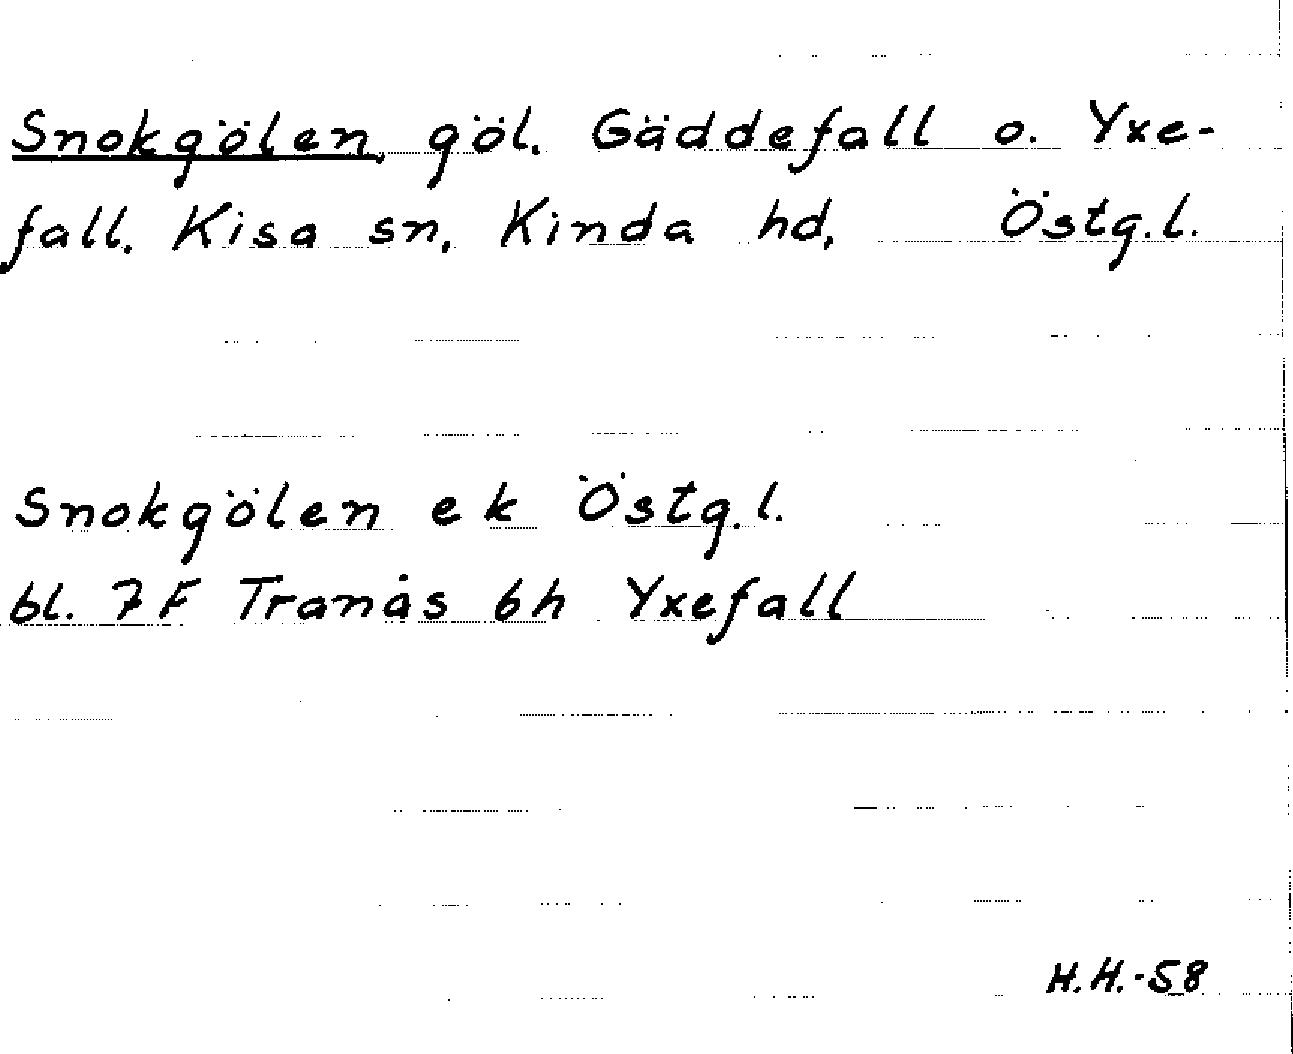 Snokgölen, göl. Gäddefall o. Yxe-
fall. Kisa sn, Kinda hd, Östg.l.
Snokgölen ek Östg.l.
bl. 7F Tranås 6h Yxefall
H.H.-58